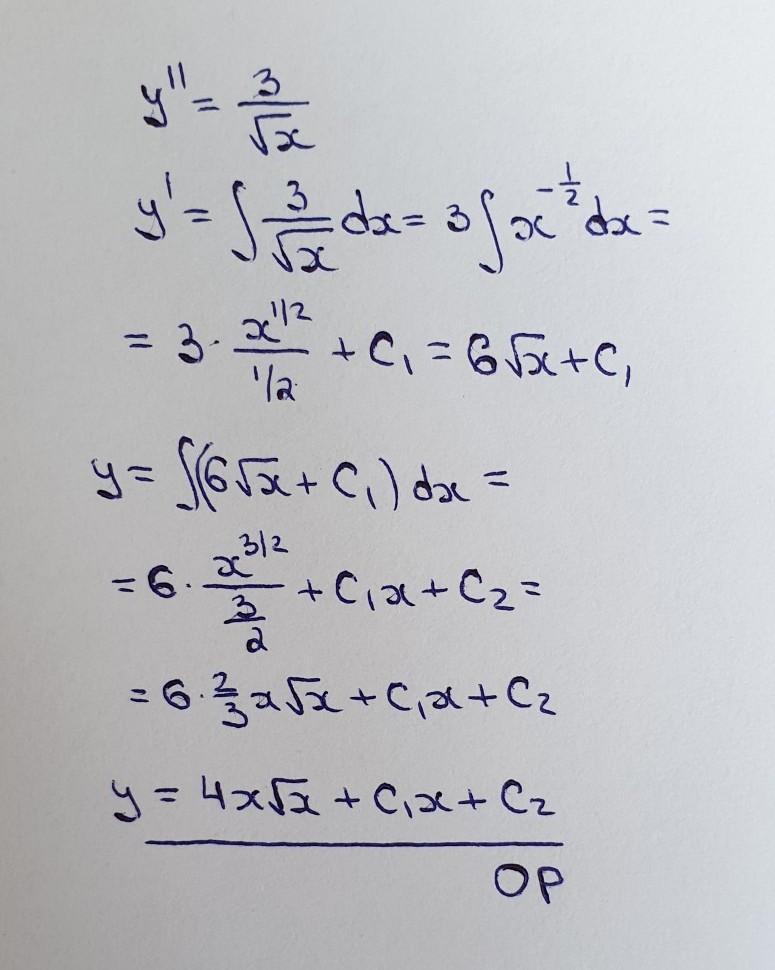 y'' = 3/√x
y' = ∫ 3/√x dx = 3 ∫ x^(-1/2) dx =
= 3 · x^(1/2)/(1/2) + C₁ = 6√x + C₁
y = ∫(6√x + C₁) dx =
= 6 · x^(3/2)/(3/2) + C₁x + C₂ =
= 6 · 2/3 x√x + C₁x + C₂
y = 4x√x + C₁x + C₂
OP